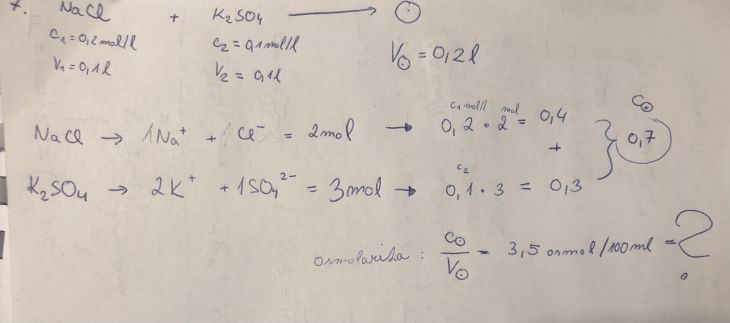 7. NaCl + K₂SO₄ → ⊙
C₁ = 0,2 mol/l C₂ = 0,1 mol/l V⊙ = 0,2 l
V₁ = 0,1 l V₂ = 0,1 l
NaCl → 1Na⁺ + 1Cl⁻ = 2mol → 0,2 · 2 = 0,4
C₁ mol/l mol
+
C⊙
0,7
K₂SO₄ → 2K⁺ + 1SO₄²⁻ = 3mol → 0,1 · 3 = 0,3
C₂
osmolarita : C⊙/V⊙ = 3,5 osmol/100ml = ?